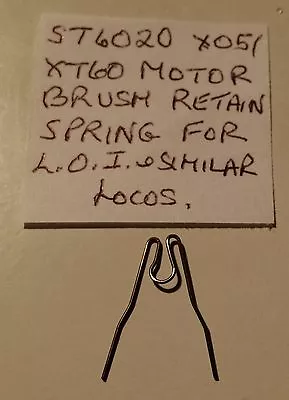 ST6020 X051
XT60 MOTOR
BRUSH RETAIN
SPRING FOR
L.O.I. & SIMILAR
LOCOS.